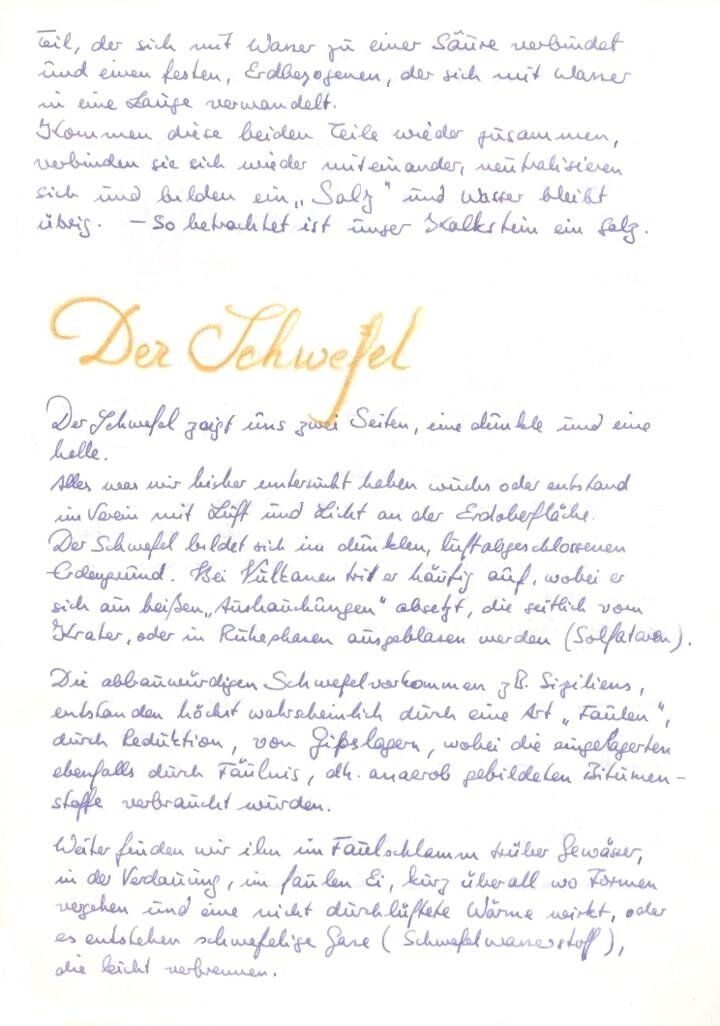 Teil, der sich mit Wasser zu einer Säure verbindet
und einen festen, Erdbezogenen, der sich mit Wasser
in eine Lauge verwandelt.
Kommen diese beiden Teile wieder zusammen,
verbinden sie sich wieder miteinander, neutralisieren
sich und bilden ein „Salz" und Wasser bleibt
übrig. – So betrachtet ist unser Kalkstein ein Salz.
Der Schwefel
Der Schwefel zeigt uns zwei Seiten, eine dunkle und eine
helle.
Alles was wir bisher untersucht haben wuchs oder entstand
im Verein mit Luft und Licht an der Erdoberfläche.
Der Schwefel bildet sich im dunklen, luftabgeschlossenen
Erdengrund. Bei Vulkanen trit er häufig auf, wobei er
sich aus heißen „Aushauchungen" absetzt, die seitlich vom
Krater, oder in Ruhephasen ausgeblasen werden (Solfataren).
Die abbauwürdigen Schwefelvorkommen z.B. Siziliens,
entstanden höchst wahrscheinlich durch eine Art „Faulen",
durch Reduktion, von Gipslagern, wobei die eingelagerten
ebenfalls durch Fäulnis, dh. anaerob gebildeten Bitumen-
stoffe verbraucht wurden.
Weiter finden wir ihn im Faulschlamm trüber Gewässer,
in der Verdauung, im faulen Ei, kurz überall wo Formen
vergehen und eine nicht durchlüftete Wärme wirkt, oder
es entstehen schwefelige Gase (Schwefelwasserstoff),
die leicht verbrennen.